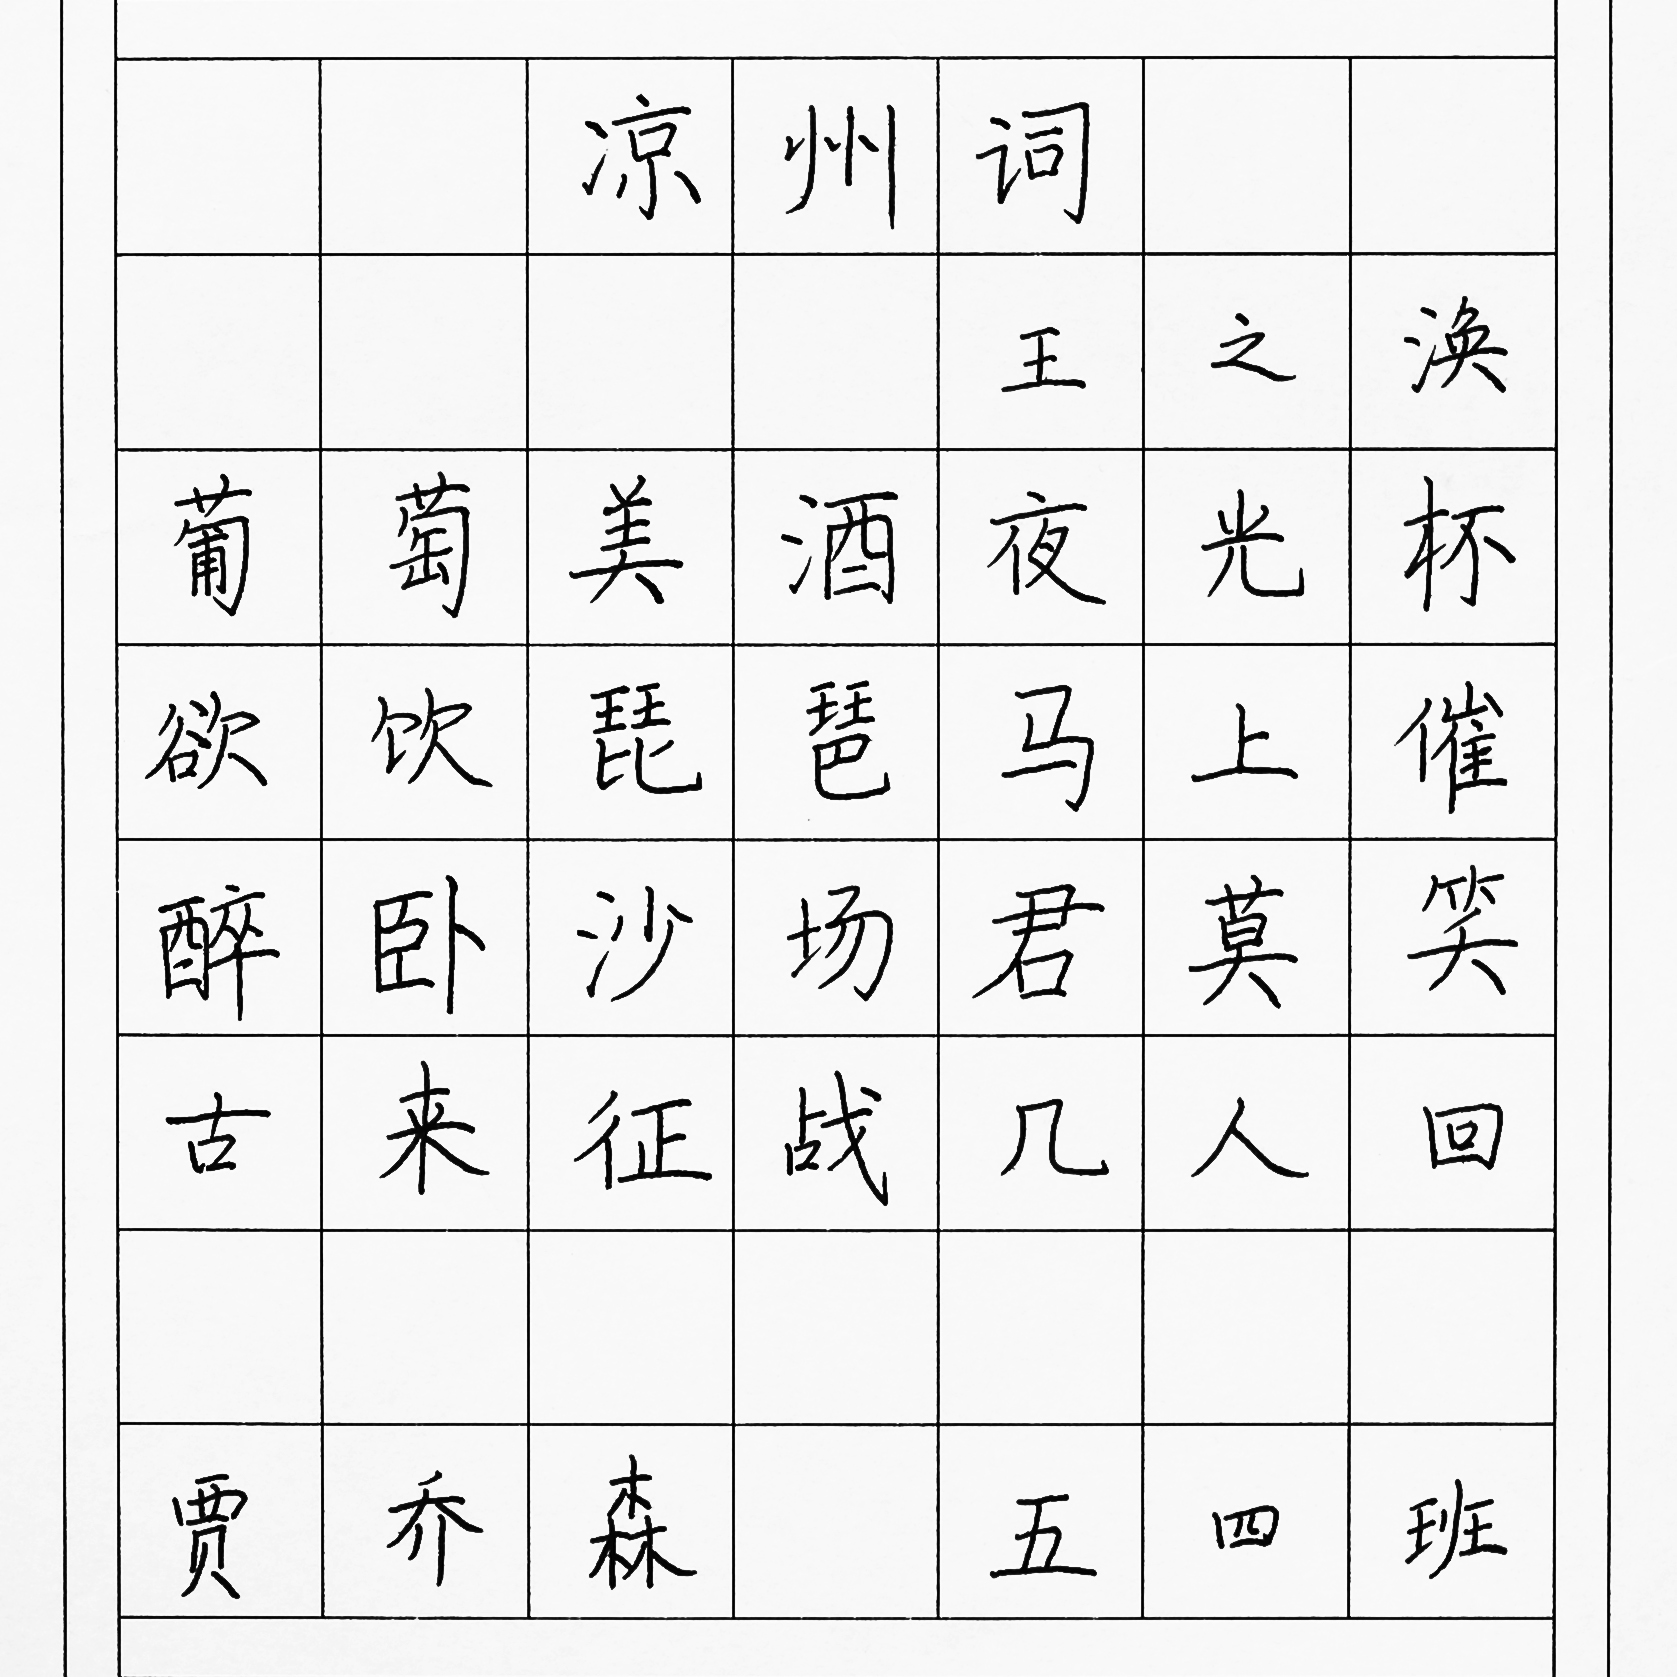 凉州词
王之涣
葡萄美酒夜光杯
欲饮琵琶马上催
醉卧沙场君莫笑
古来征战几人回
贾乔森 五四班